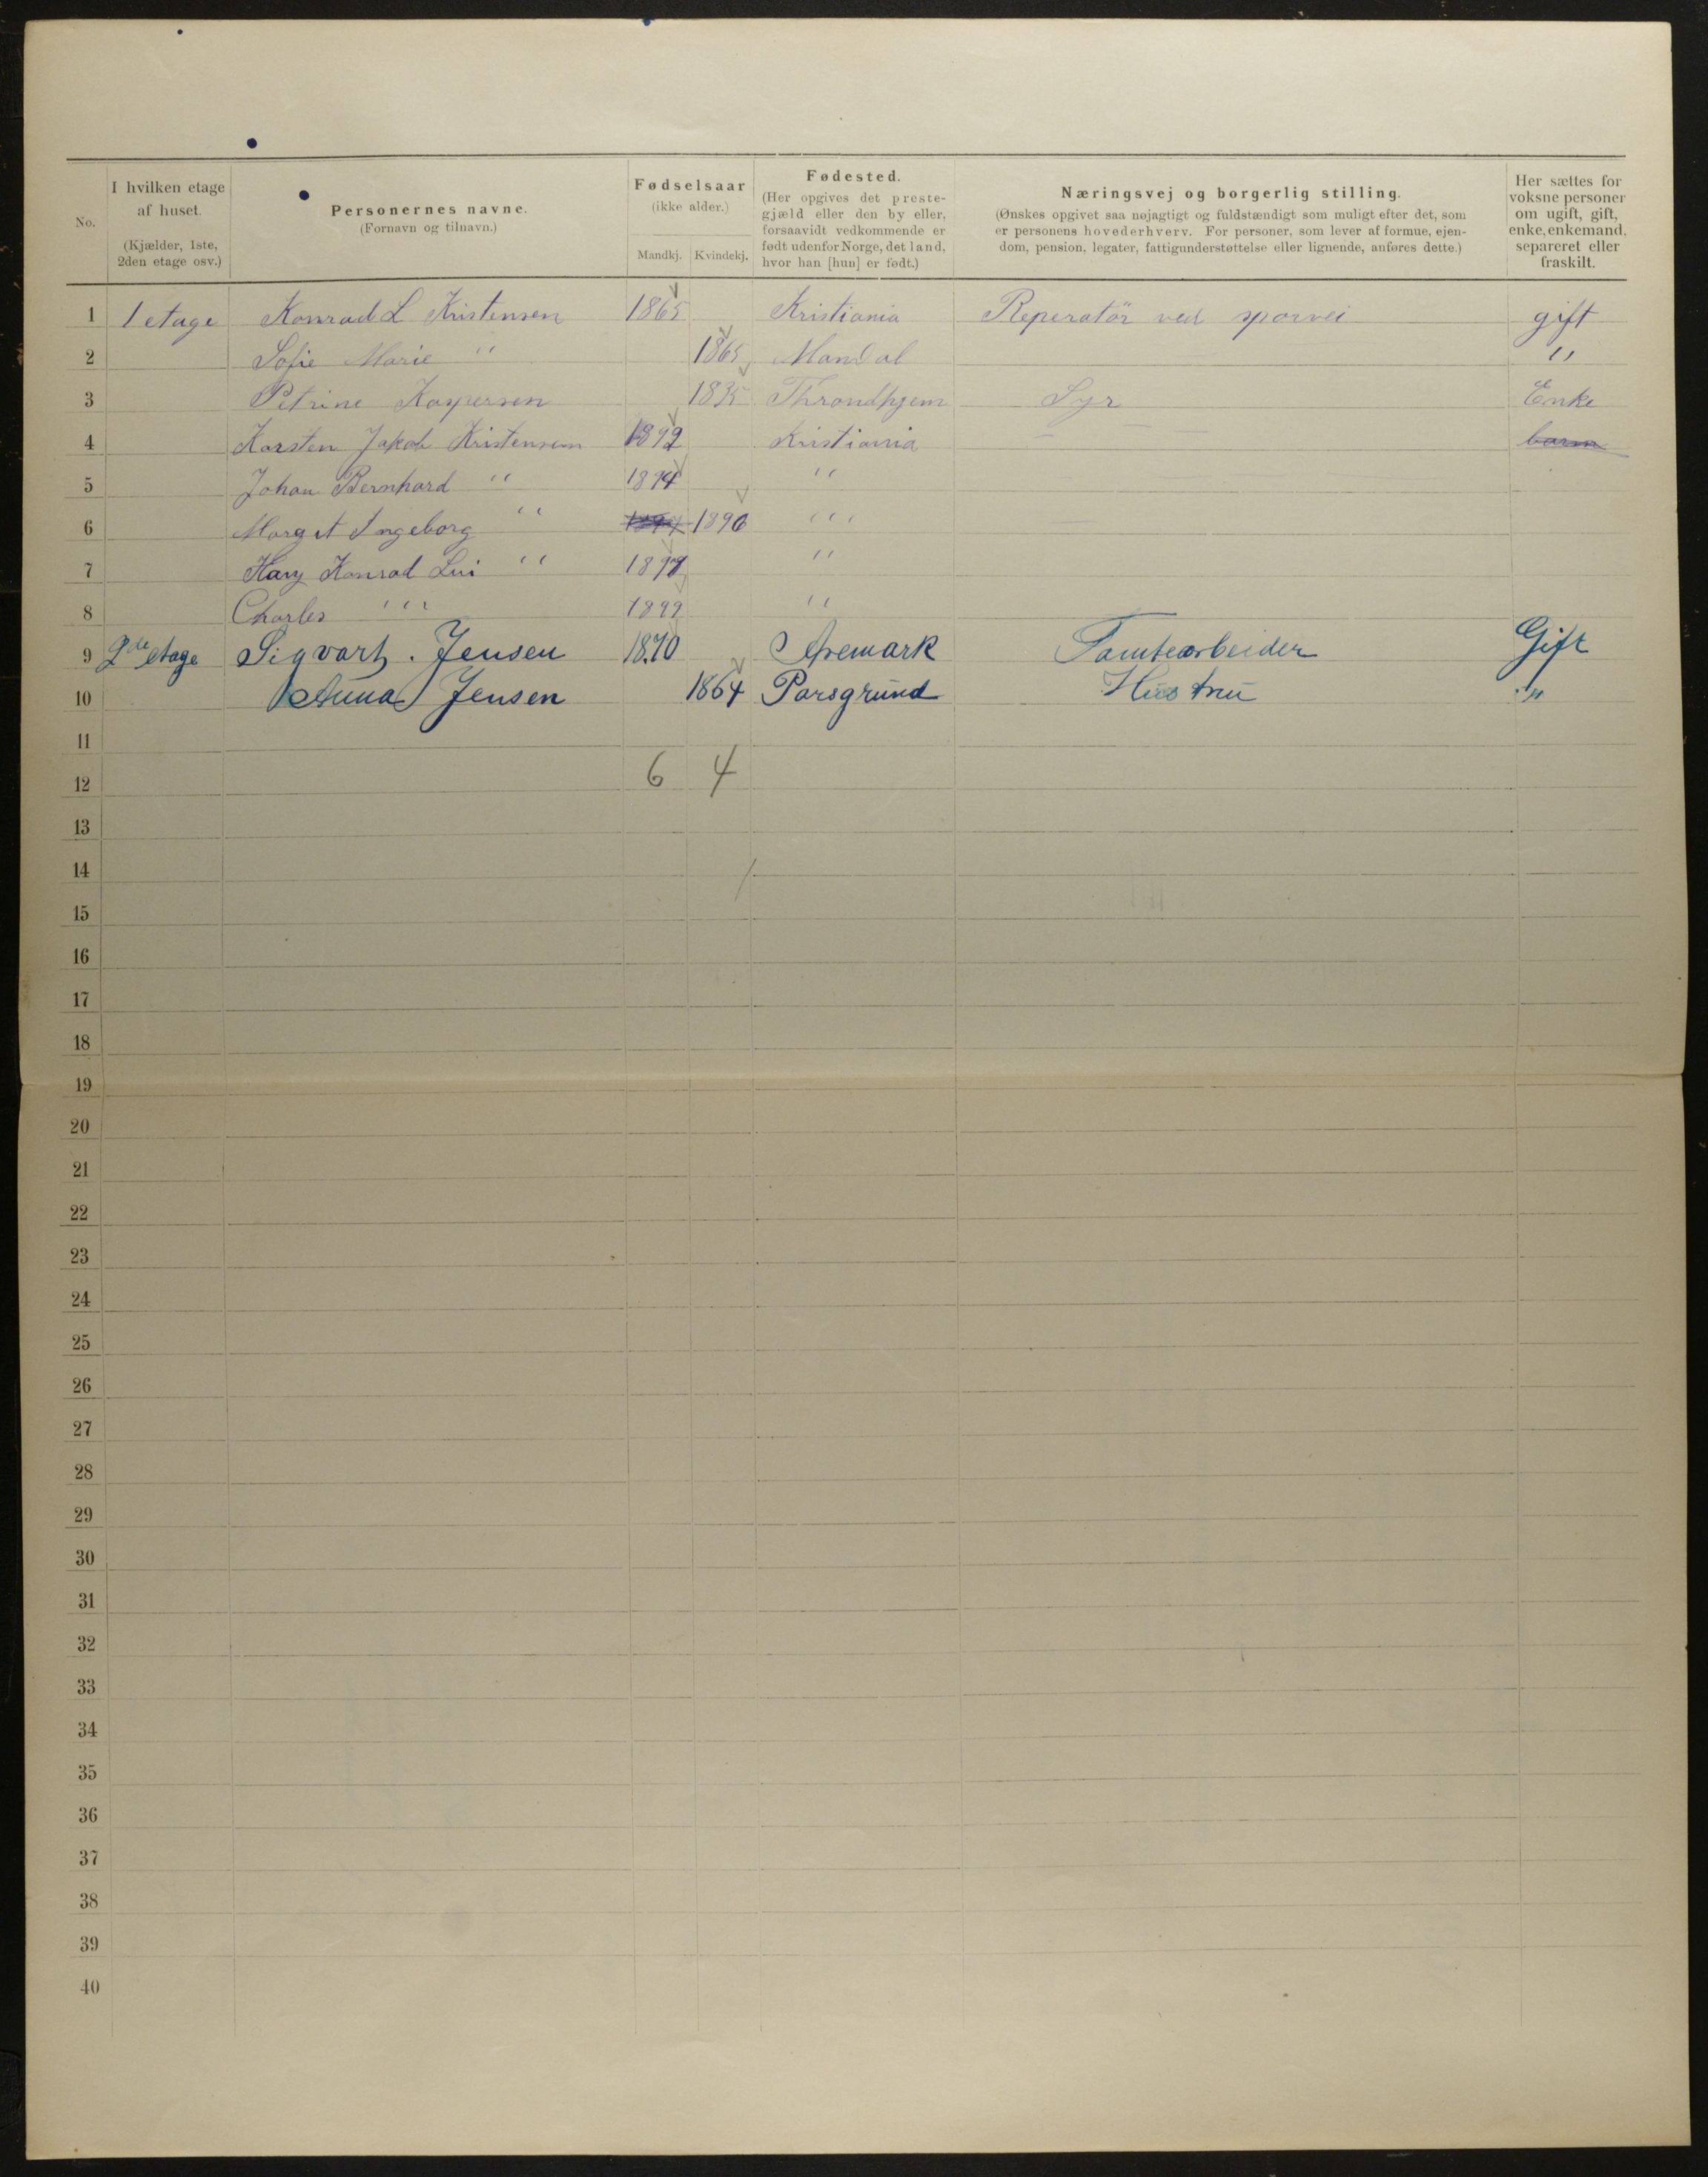 No. I hvilken etage af huset. (Kjælder, 1ste, 2den etage osv.) Personernes navne. (Fornavn og tilnavn.) Fødselsaar (ikke alder.) Mandkj. Kvindekj. Fødested. (Her opgives det prestegjæld eller den by eller, forsaavidt vedkommende er født udenfor Norge, det land, hvor han [hun] er født.) Næringsvej og borgerlig stilling. (Ønskes opgivet saa nøjagtigt og fuldstændigt som muligt efter det, som er personens hovederhverv. For personer, som lever af formue, ejendom, pension, legater, fattigunderstøttelse eller lignende, anføres dette.) Her sættes for voksne personer om ugift, gift, enke, enkemand, separeret eller fraskilt.
1 1 etage Konrad L Kristensen 1865 Kristiania Reperatör ved sporvei gift
2 Sofie Marie " 1865 Mandal "
3 Petrine Kaspersen 1835 Throndhjem Syr Enke
4 Karsten Jakob Kristensen 1892 Kristiania barn
5 Johan Bernhard " 1894 "
6 Margit Ingeborg " 1896 "
7 Hary Konrad Lui " 1897 "
8 Charles " 1899 "
9 2de etage Sigvart. Jensen 1870 Aremark Tomtearbeider Gift
10 Anna Jensen 1864 Porsgrund Hustru "
11
12 6 4
13
14
15
16
17
18
19
20
21
22
23
24
25
26
27
28
29
30
31
32
33
34
35
36
37
38
39
40